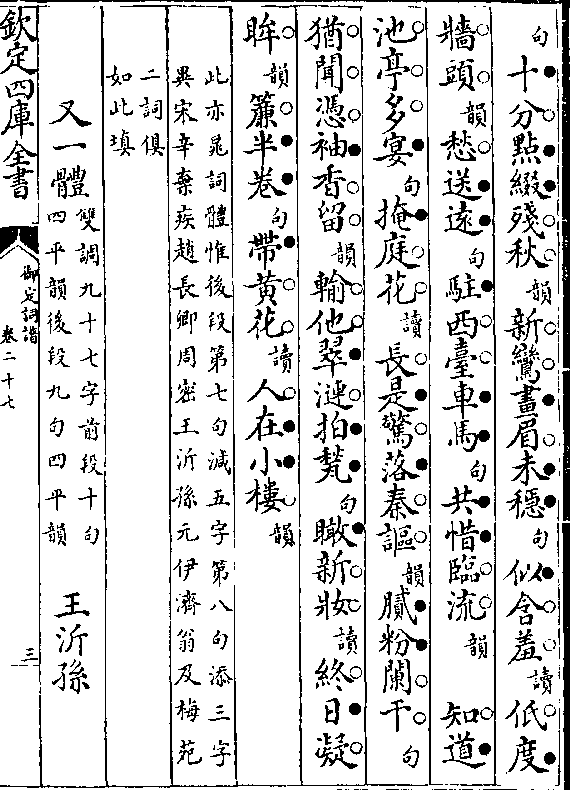 句十分點綴殘秋韻新鸞畫眉未穩句似含羞讀低度
牆頭韻愁送遠句駐西臺車馬句共惜臨流韻　知道
池亭多宴句掩庭花讀長是驚落秦謳韻膩粉闌干句
猶聞憑袖香留韻輸他翠漣拍甃句瞰新妝讀終日凝
眸韻簾半卷句帶黃花讀人在小樓韻
此亦晁詞體惟後段第七句減五字第八句添三字
異宋辛棄疾趙長卿周密王沂孫元伊濟翁及梅苑
二詞俱
如此填
又一體雙調九十七字前段十句
四平韻後段九句四平韻　王沂孫
欽定四庫全書
御定詞譜
卷二十七
三